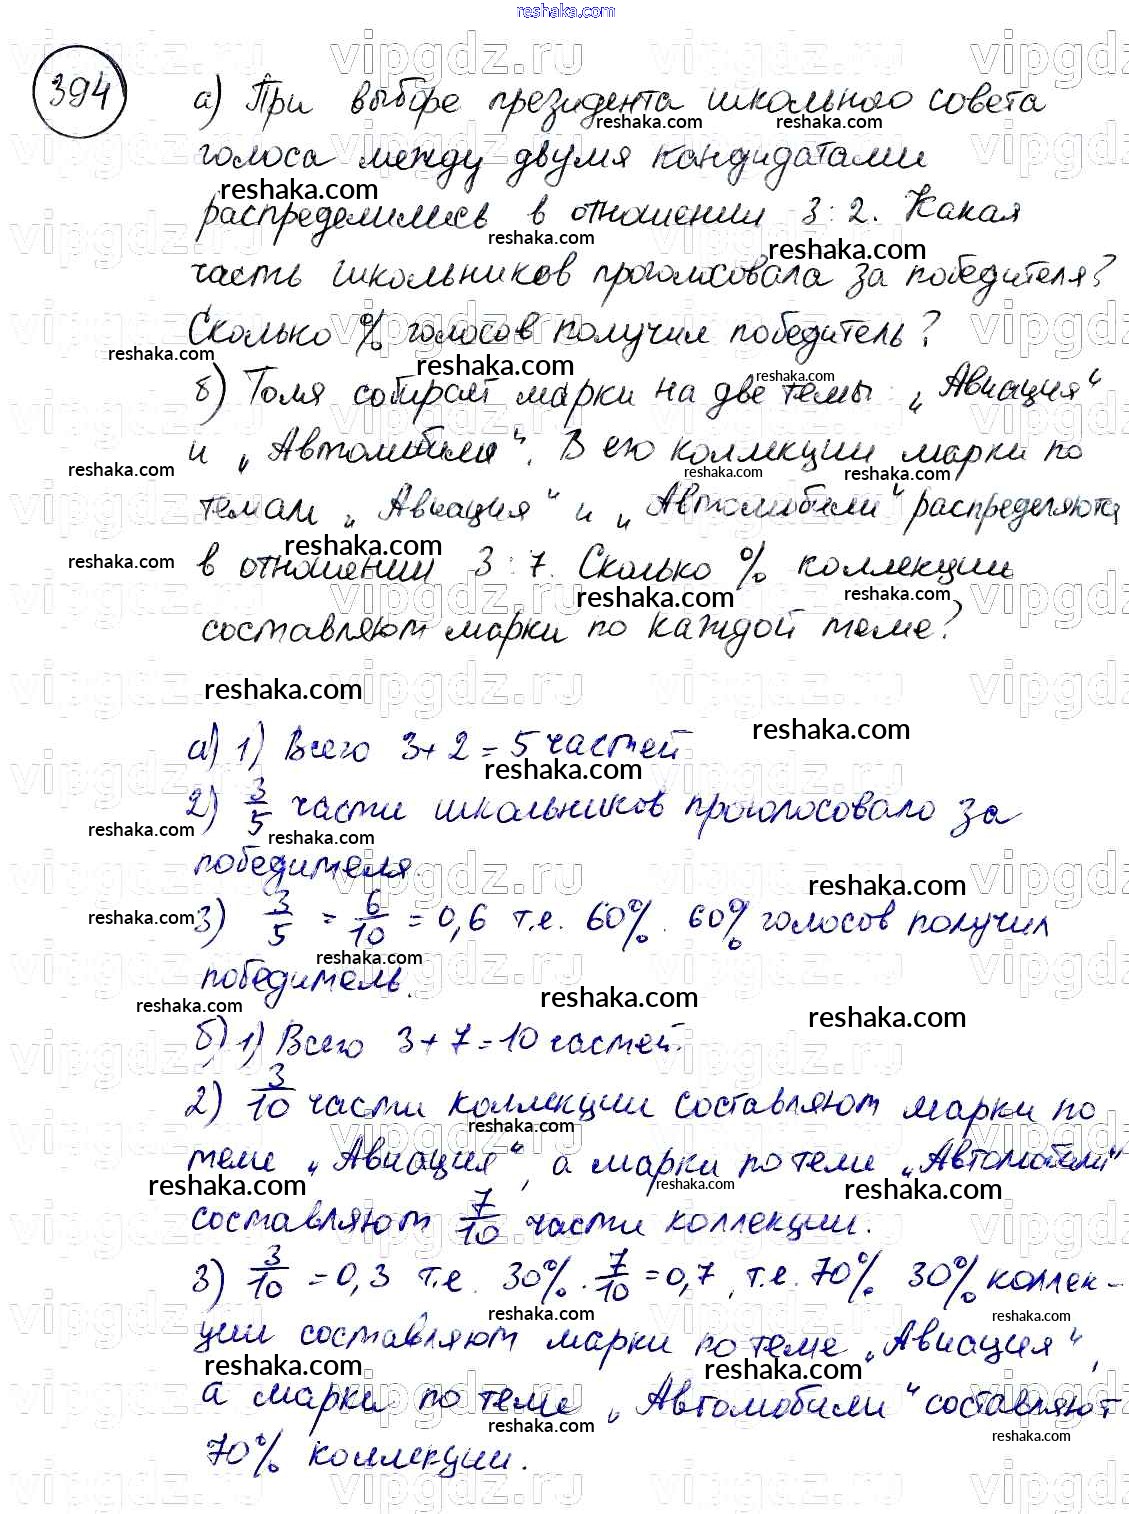 reshaka.com
394
а) При выборе президента школьного совета
голоса между двумя кандидатами
распределились в отношении 3:2. Какая
часть школьников проголосовала за победителя?
Сколько % голосов получил победитель?
б) Толя собирает марки на две темы „Авиация“
и „Автомобили“. В его коллекции марки по
темам „Авиация“ и „Автомобили“ распределяются
в отношении 3:7. Сколько % коллекции
составляют марки по каждой теме?
а) 1) Всего 3+2=5 частей
2) 3/5 части школьников проголосовало за
победителя.
3) 3/5 = 6/10 = 0,6 т.е. 60%. 60% голосов получил
победитель.
б) 1) Всего 3+7=10 частей.
2) 3/10 части коллекции составляют марки по
теме „Авиация“, а марки по теме „Автомобили“
составляют 7/10 части коллекции.
3) 3/10 = 0,3 т.е. 30%. 7/10 = 0,7, т.е. 70% 30% коллек-
ции составляют марки по теме „Авиация“,
а марки по теме „Автомобили“ составляют
70% коллекции.